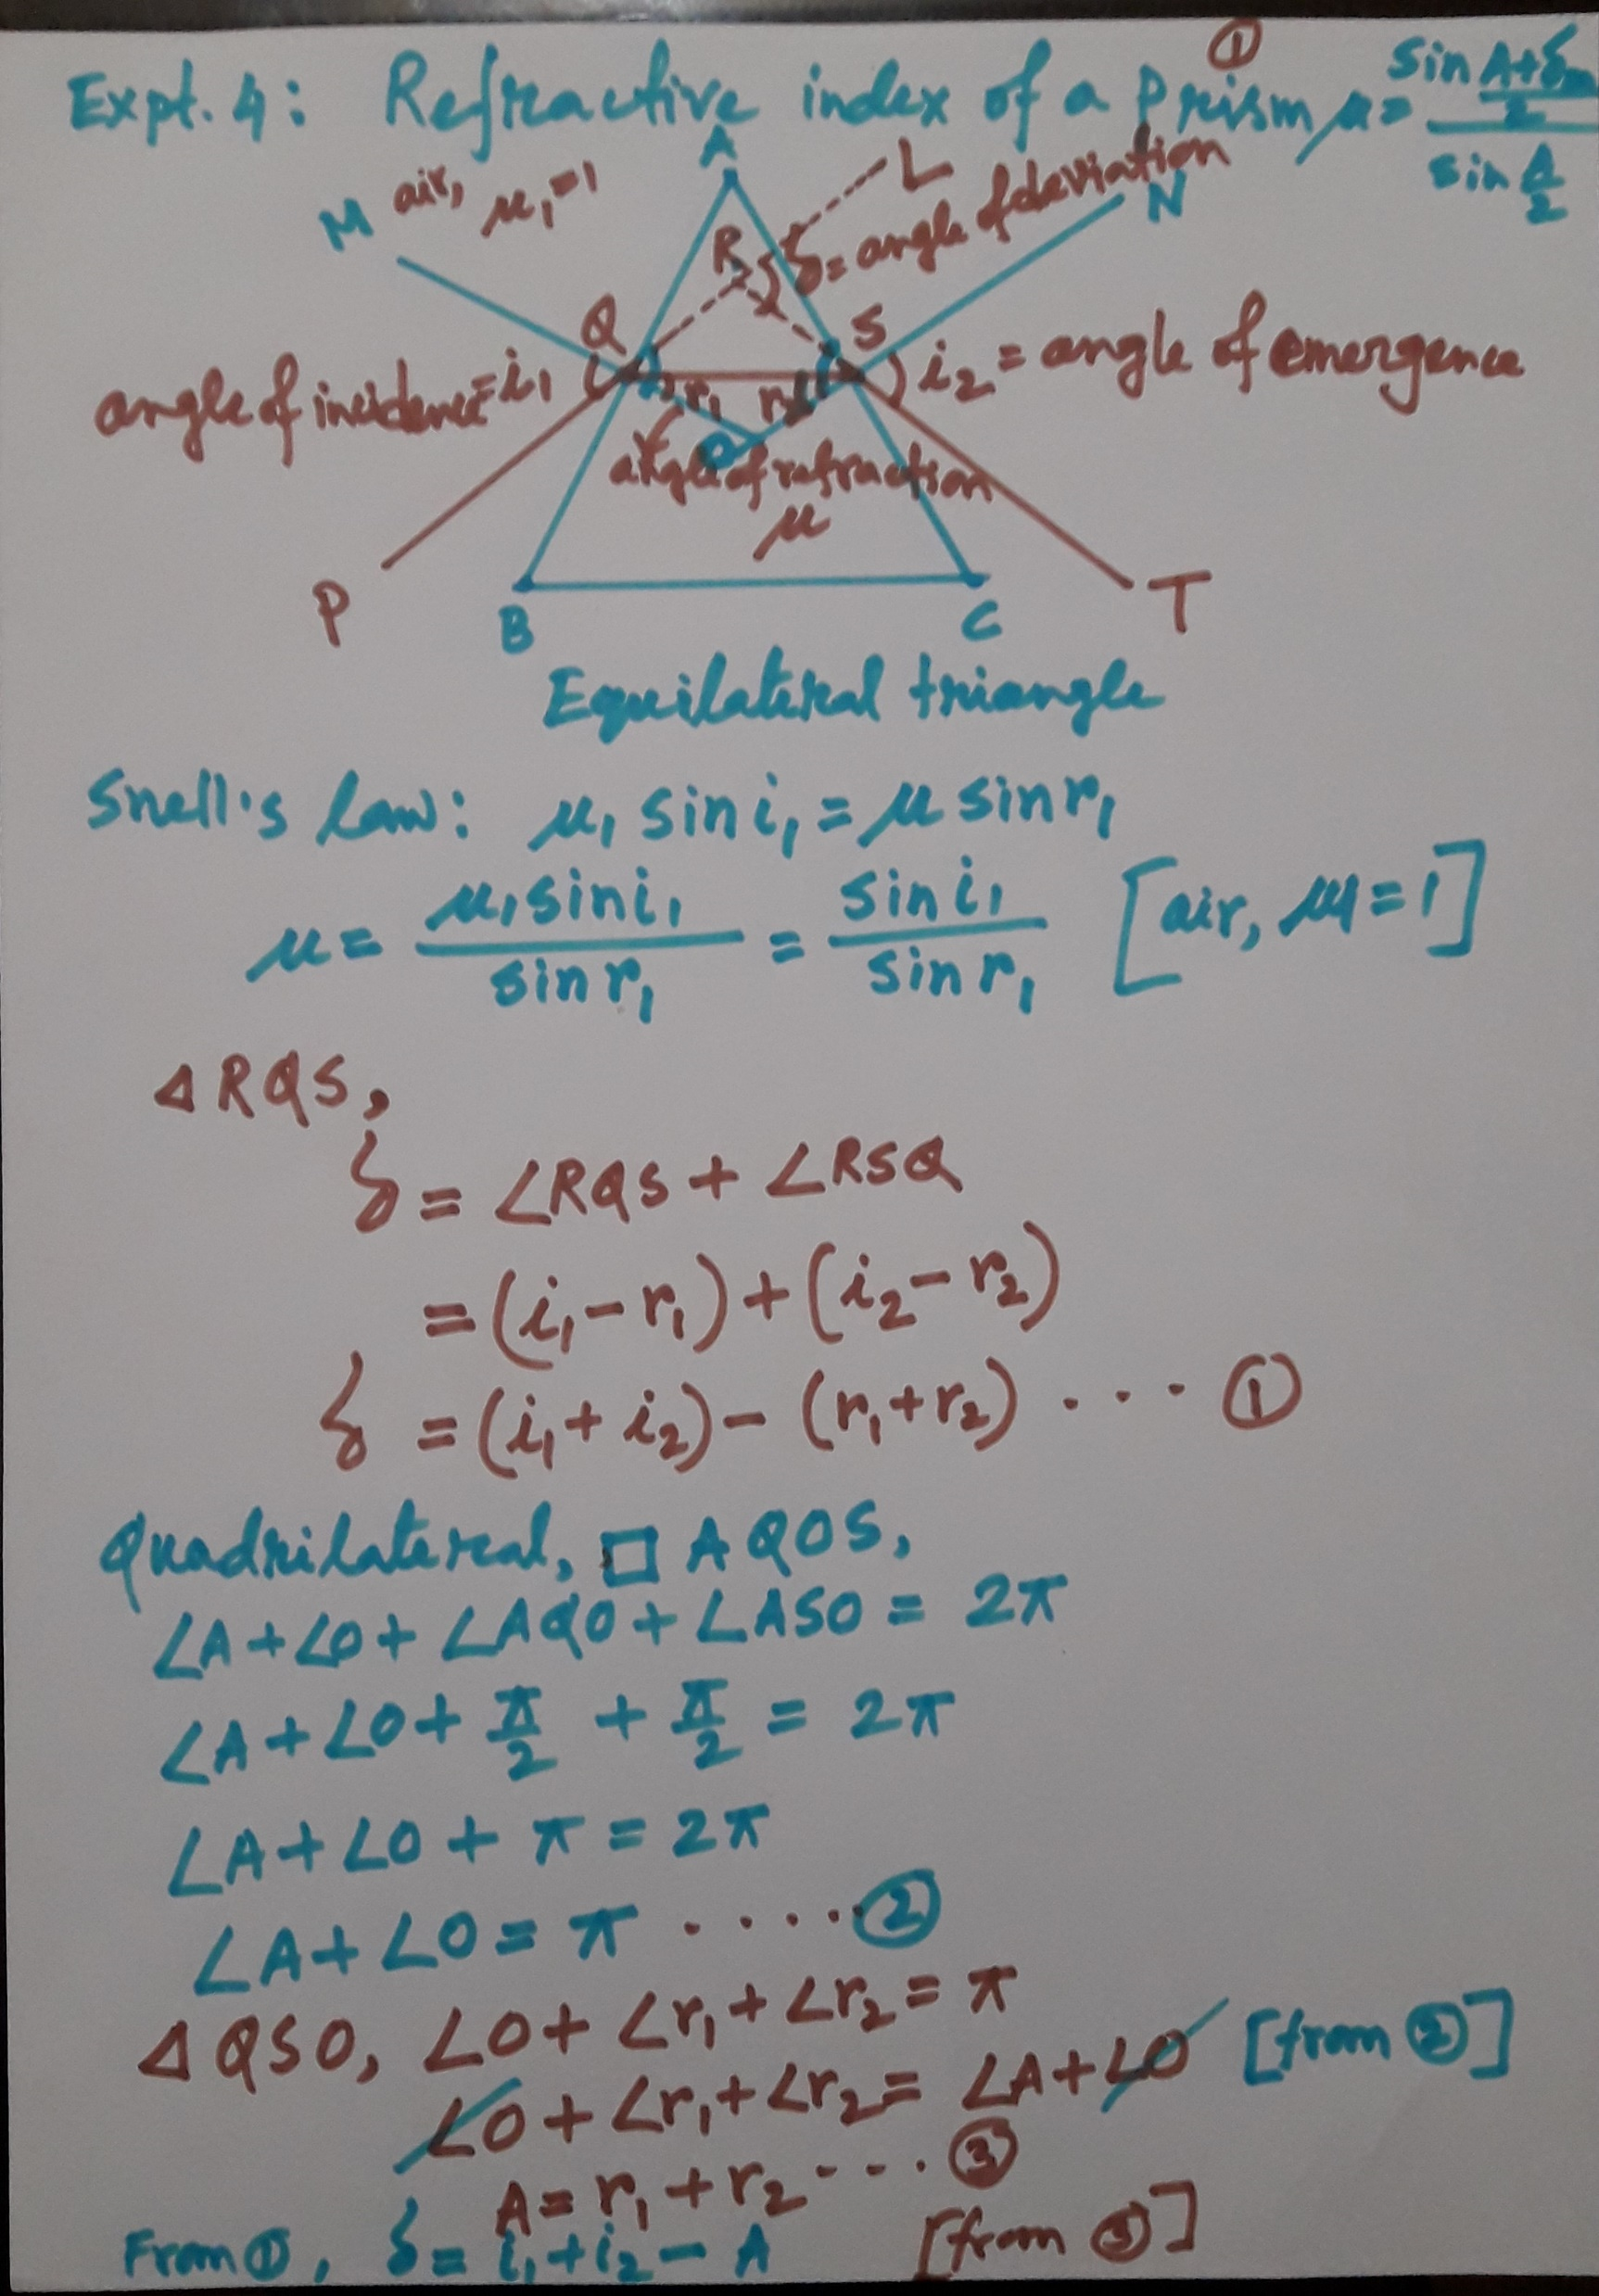 ①
Expt. 4: Refractive index of a prism μ = sin (A+δm)/2 / sin A/2
A
L
M air, μ₁=1
N
R
δ = angle of deviation
Q
S
angle of incidence = i₁
i₂ = angle of emergence
r₁ r₂
O
angle of refraction
μ
P
T
B
C
Equilateral triangle
Snell's law: μ₁ sin i₁ = μ sin r₁
μ = μ₁ sin i₁ / sin r₁ = sin i₁ / sin r₁ [air, μ₁=1]
Δ RQS,
δ = ∠RQS + ∠RSQ
= (i₁ - r₁) + (i₂ - r₂)
δ = (i₁ + i₂) - (r₁ + r₂) ... ①
Quadrilateral, □ AQOS,
∠A + ∠O + ∠AQO + ∠ASO = 2π
∠A + ∠O + π/2 + π/2 = 2π
∠A + ∠O + π = 2π
∠A + ∠O = π ..... ②
Δ QSO, ∠O + ∠r₁ + ∠r₂ = π
∠O + ∠r₁ + ∠r₂ = ∠A + ∠O [from ②]
A = r₁ + r₂ ... ③
From ①, δ = i₁ + i₂ - A [from ③]